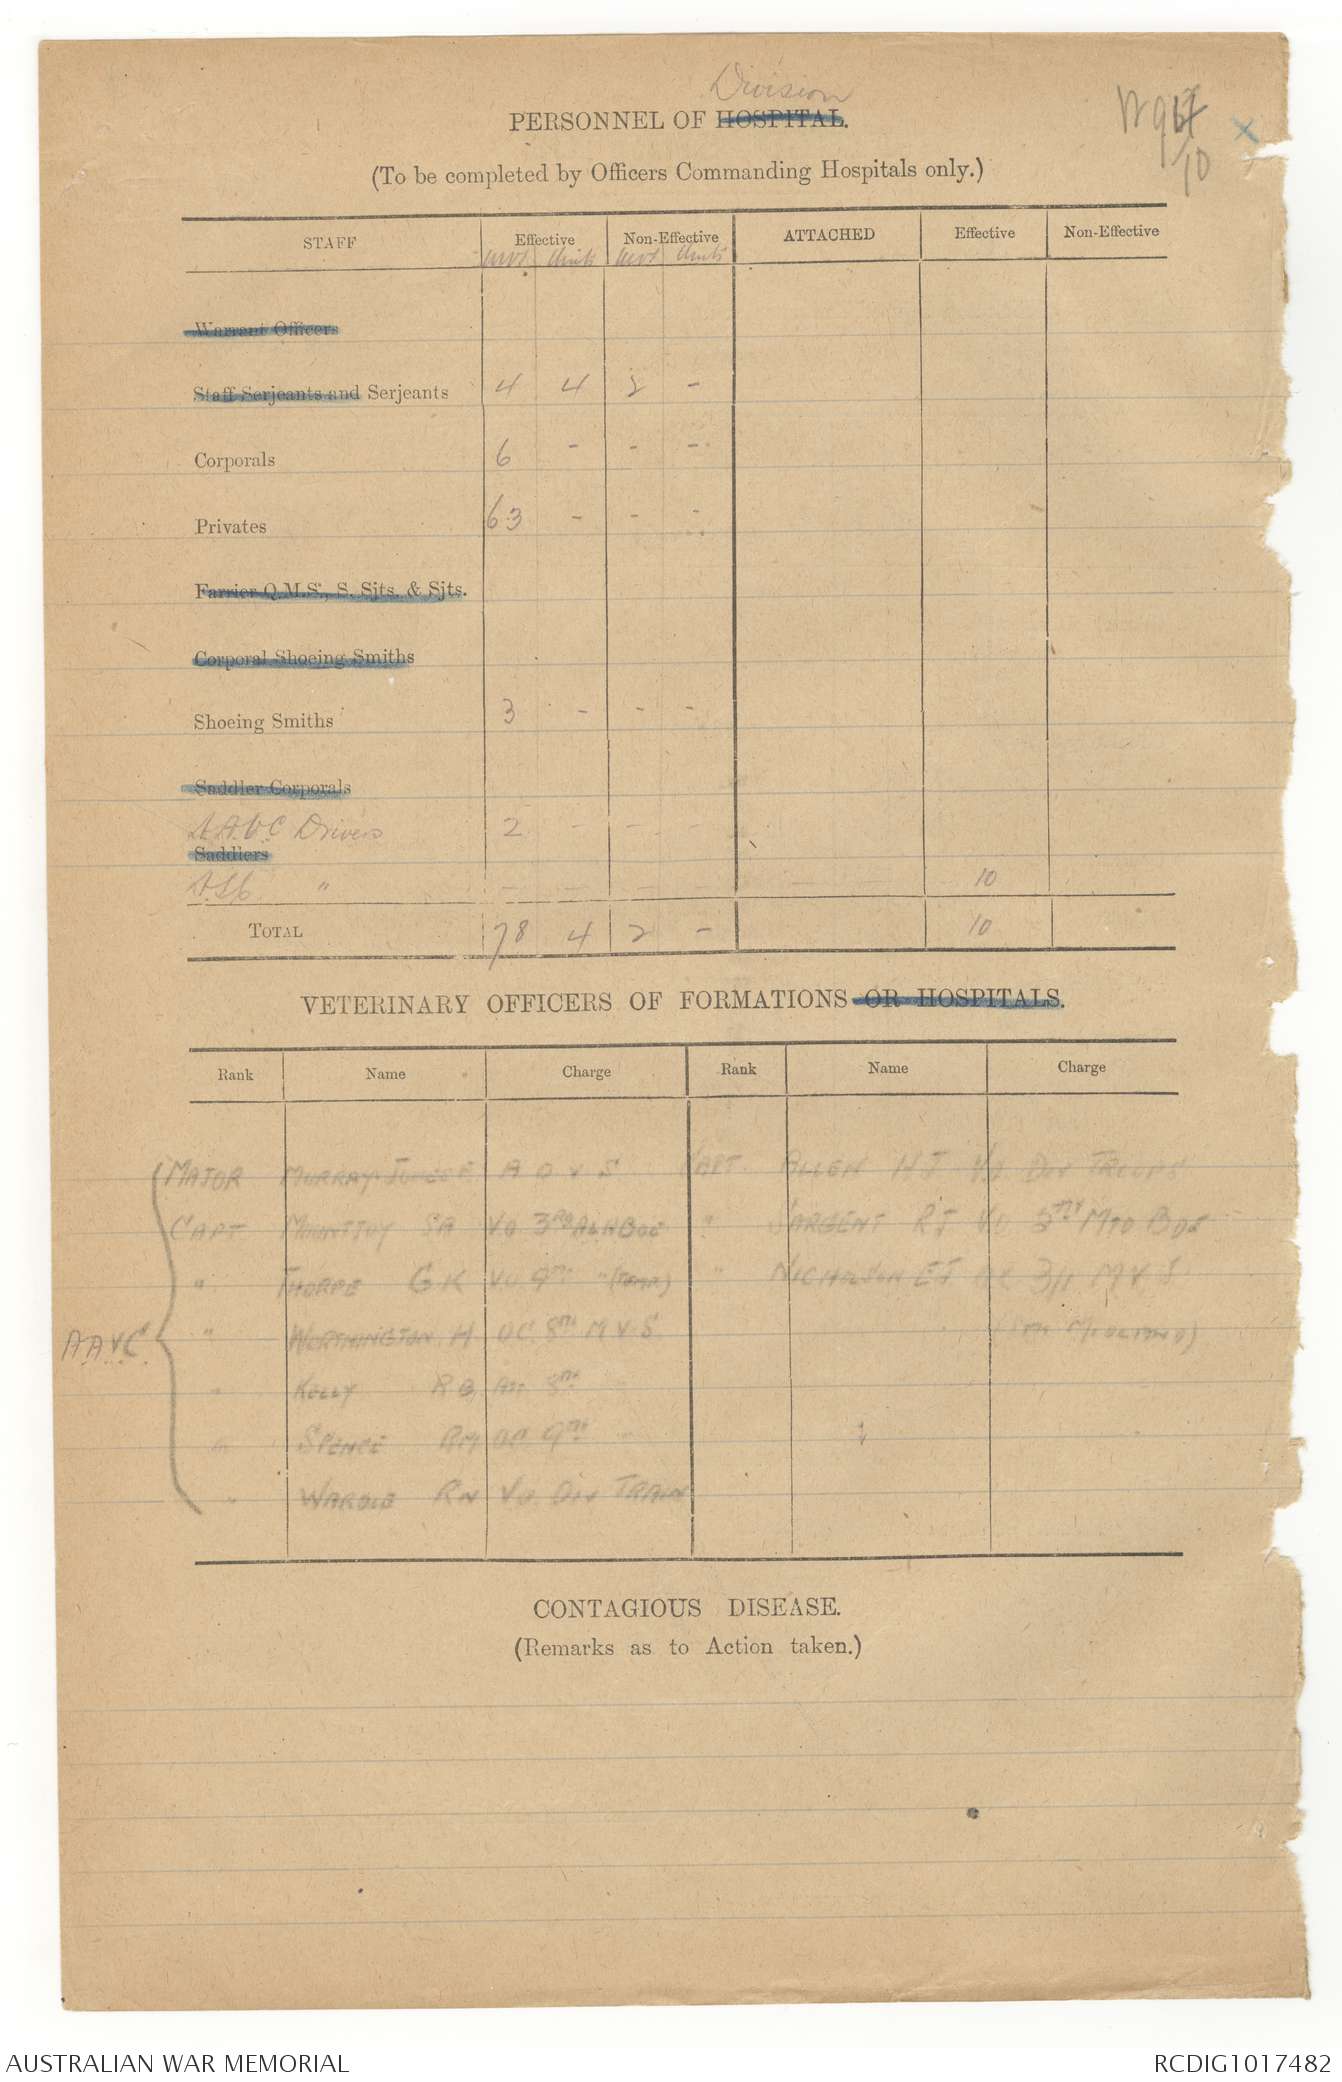 Division
PERSONNEL OF HOSPITAL.
(To be completed by Officers Commanding Hospitals only.)
STAFF Effective Non-Effective ATTACHED Effective Non-Effective
Warrant Officers
Staff Serjeants and Serjeants 4 4 2 -
Corporals 6 - - -
Privates 63 - - -
Farrier Q.M.S., S. Sjts. & Sjts.
Corporal Shoeing Smiths
Shoeing Smiths 3 - - -
Saddler Corporals
A.A.V.C Drivers 2 - - -
Saddlers
" - - - - - - 10
TOTAL 78 4 2 - 10
VETERINARY OFFICERS OF FORMATIONS OR HOSPITALS.
Rank Name Charge Rank Name Charge
MAJOR MURRAY-JONES F A D V S CAPT. ALLEN H J VO DIV TROOPS
CAPT MOUNTJOY SA VO 3RD ALH BDE " SARGENT R J VO 5TH MTD BDE
" THORPE G K VO 9TH " (TEMP) " NICHOLSON E J OC 3/1 M V S
A A V C " WORTHINGTON H OC 8TH M V S
" KELLY R B ATT 8TH "
" SPENCE RM 9TH "
" WARDLE RN VO DIV TRAIN
CONTAGIOUS DISEASE.
(Remarks as to Action taken.)
AUSTRALIAN WAR MEMORIAL RCDIG1017482